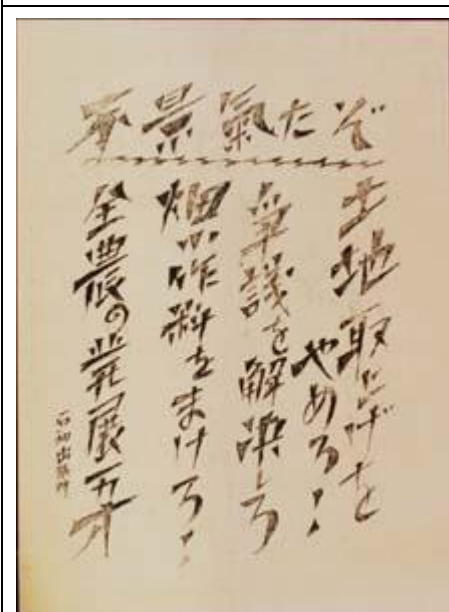 不景氣だぞ
土地取上げを
やめろ!
爭議を解決しろ
畑小作料をまけろ!
全農の発展万才
出張所